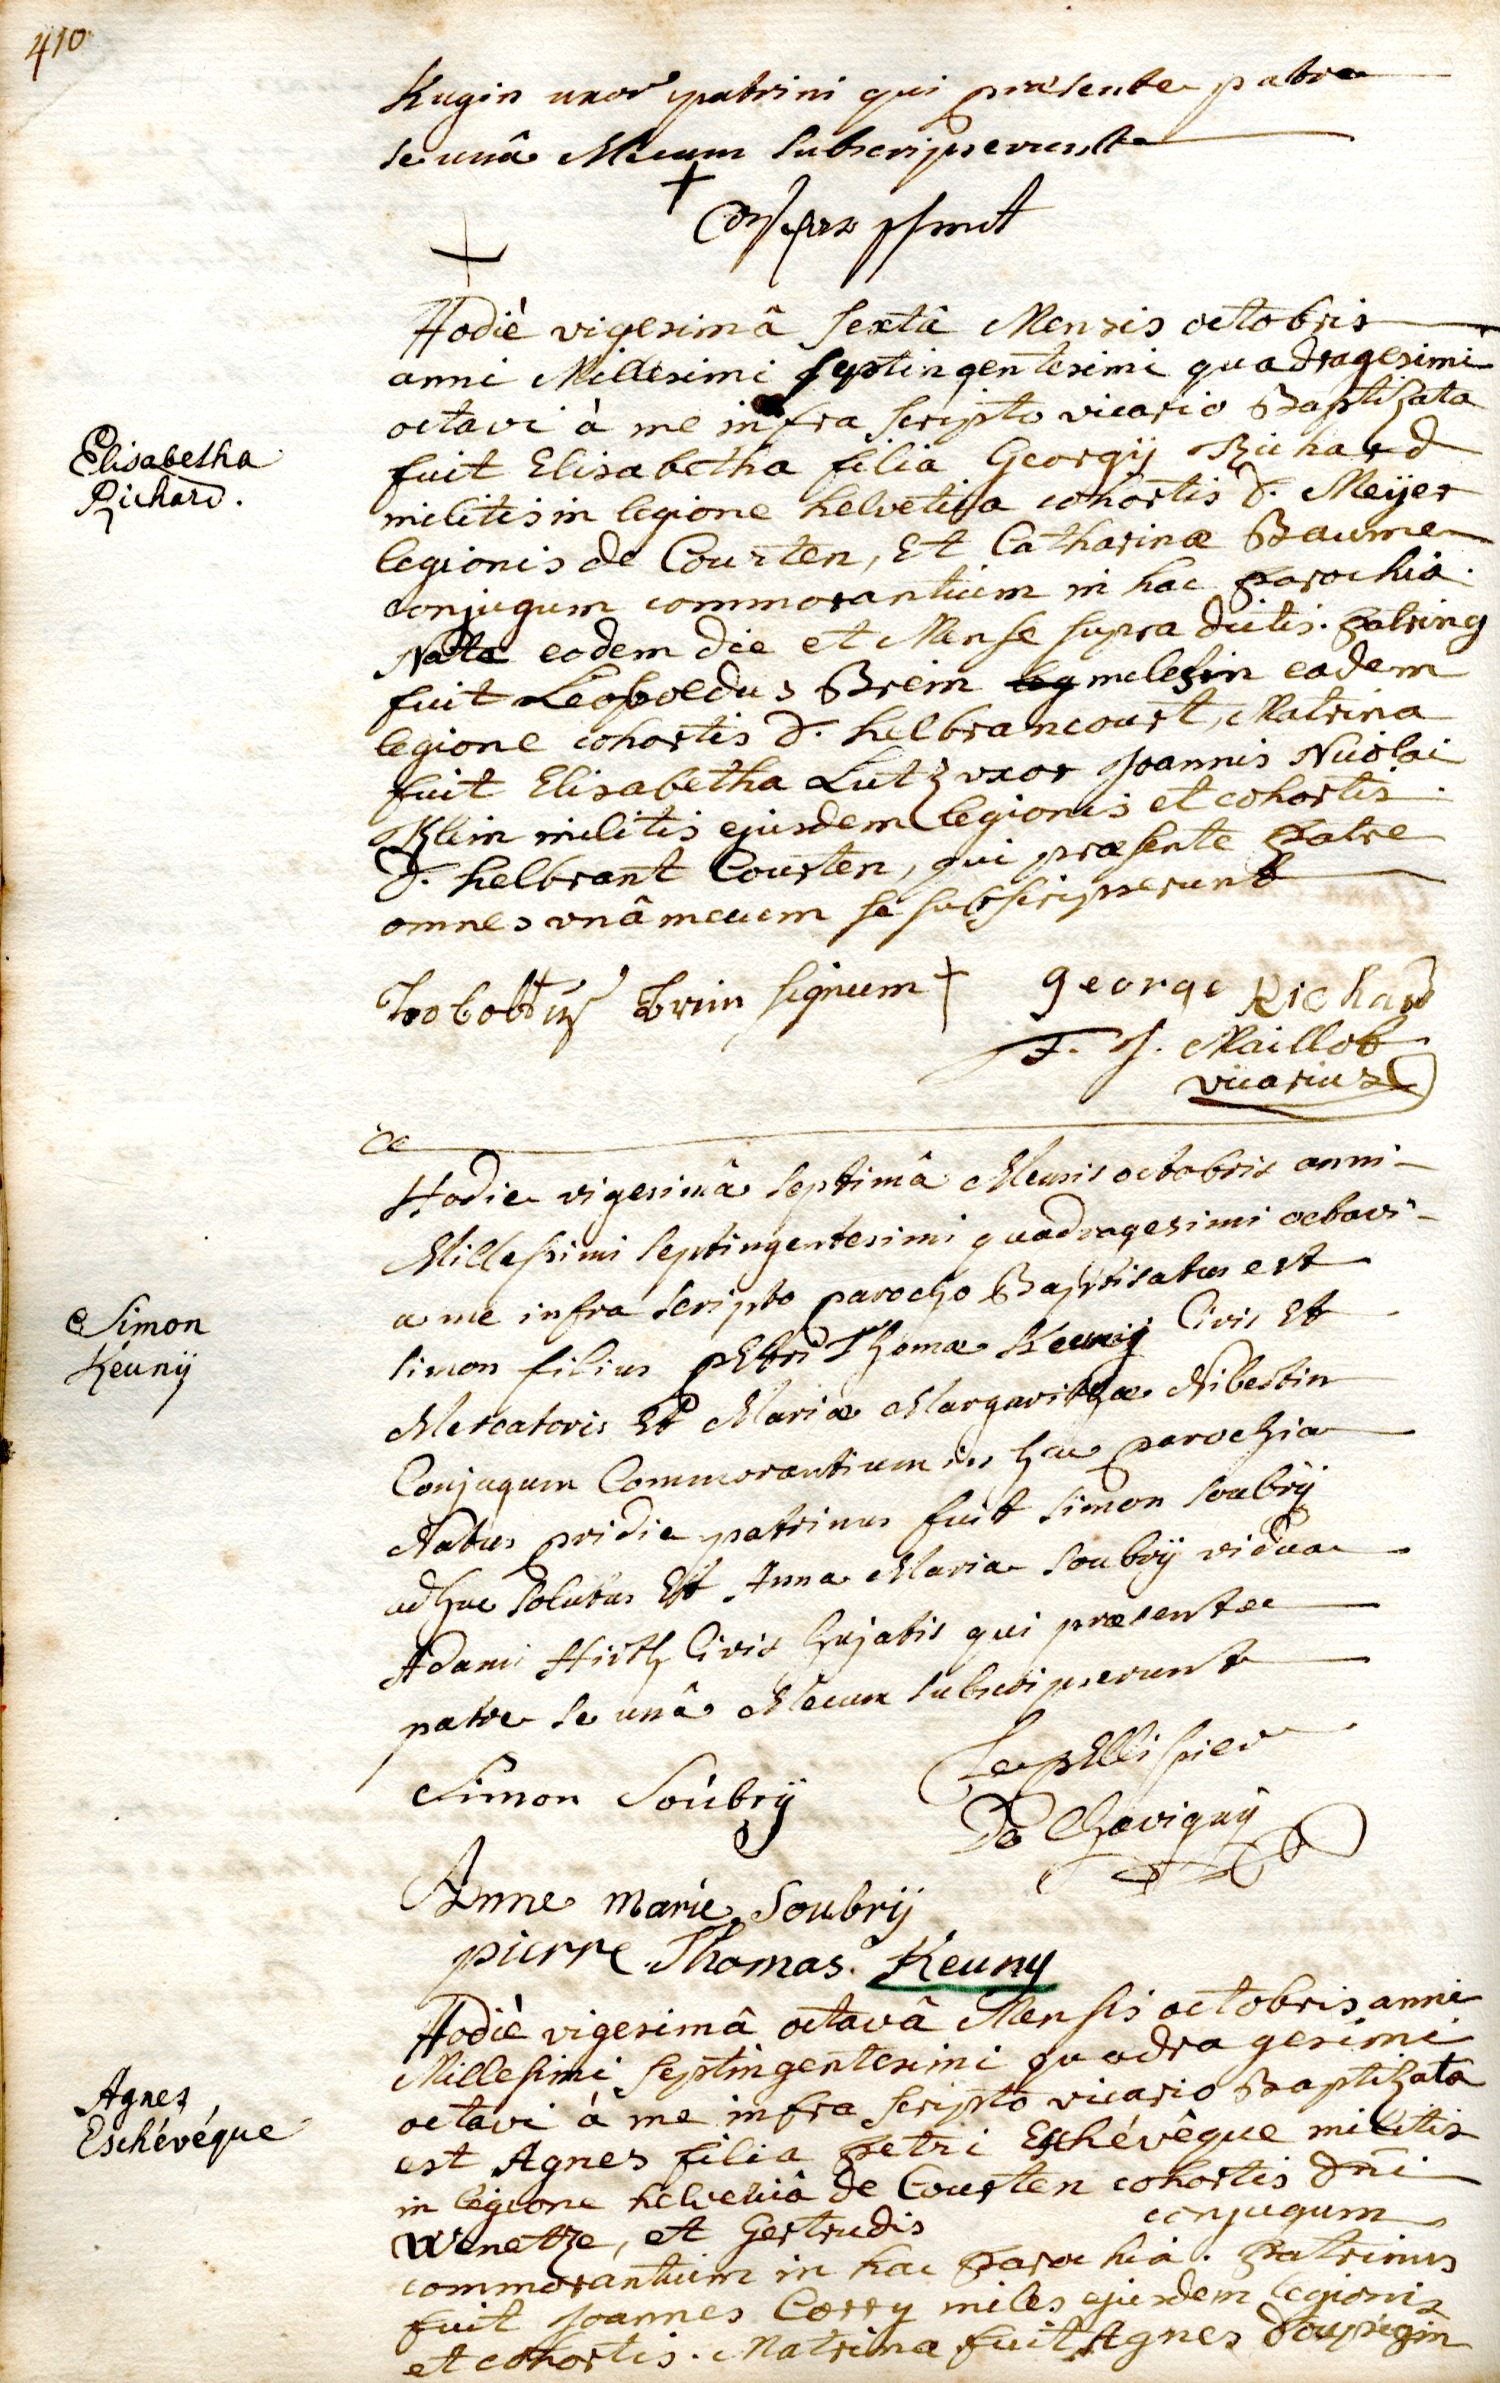 410
Kugin uxor patrini qui præsente patre
se unâ Mecum subscripserunt
+
+
Hodiè vigesimâ sextâ Mensis octobris
anni Millesimi septingentesimi quadragesimi
octavi à me infra scripto vicario Baptizata
Elisabetha
Richard.
fuit Elisabetha filia Georgÿ Richard
militis in legione helvetica cohortis d. Meÿer
legionis de Courten, Et Catharinæ Baume
conjugum commorantium in hac parochia.
Nata eodem die et Mense supra dictis. patrinus
fuit Leopoldus Brein miles in eadem
legione cohortis d. helbrancourt, Matrina
fuit Elisabetha Lutz uxor Joannis Nicolai
Klein militis ejusdem legionis et cohortis
d. helbrant Courten, qui præsente patre
omnes unâ mecum se subscripserunt
brein signum + george Richard
F. J. Maillot
vicarius
Hodie vigesimâ septimâ Mensis octobris anni
Millesimi septingentesimi quadragesimi octavi
a me infra scripto parocho Baptisatus est
Simon
Keunÿ
simon filius petri Thomæ Keunij Civis et
Mercatoris et Mariæ Margarithæ Nibestin
Conjugum Commorantium in hac parochia
Natus pridie patrinus fuit simon soubrÿ
adhuc solutus Et Anna Maria soubrÿ vidua
Adami Hirth Civis hujatis qui præsente
patre se unâ Mecum subscripserunt
Simon Soúbrÿ
Lepellisier
De Chavignÿ
Anne marie Soubrÿ
pierre Thomas. Keuny
Hodiè vigesimâ octavâ Mensis octobris anni
Millesimi septingentesimi quadragesimi
octavi à me infra scripto vicario Baptizata
Agnes
Eschévéque
est Agnes filia petri Eschévêque militis
in legione helveticâ de Courten cohortis dni
Wenetze, et Gertrudis conjugum
commorantium in hac parochia. patrinus
fuit Joannes Corry miles ejusdem legionis
et cohortis. Matrina fuit Agnes Doupsigin